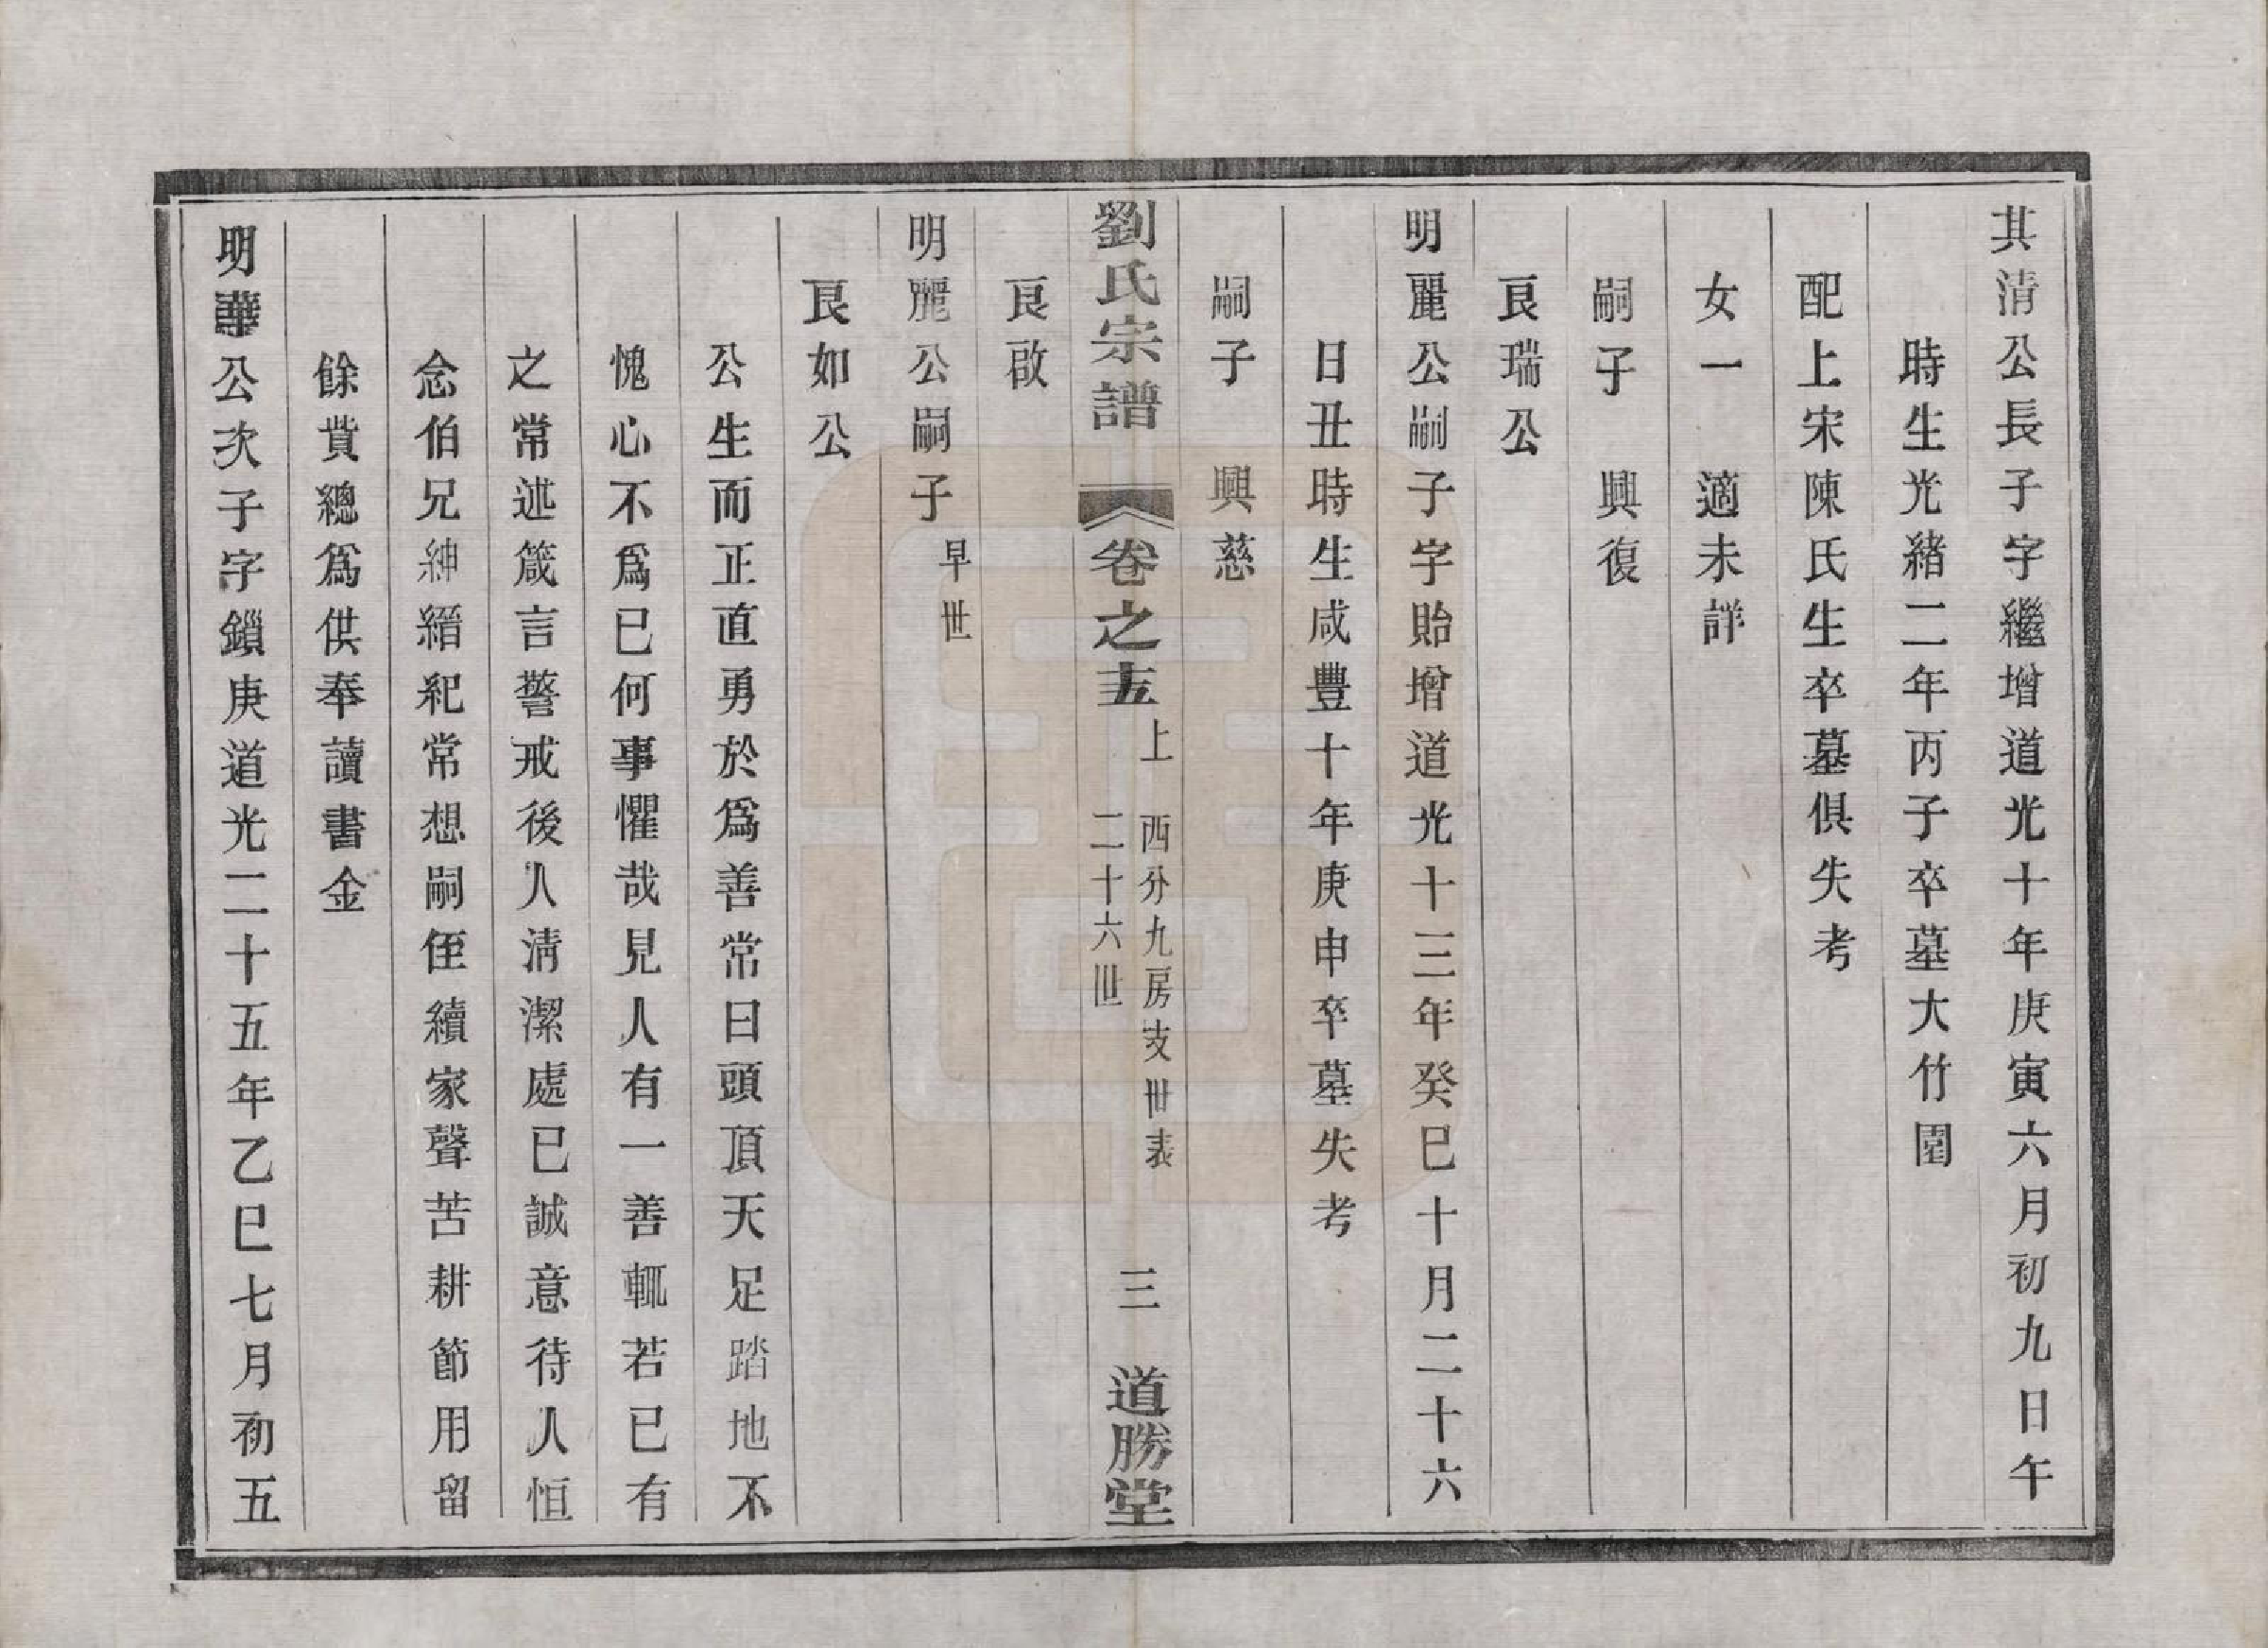 其清公長子字繼增道光十年庚寅六月初九日午
時生光緒二年丙子卒墓大竹園
配上宋陳氏生卒墓俱失考
女一 適未詳
嗣子 興復
艮瑞公
明麗公嗣子字貽增道光十三年癸巳十月二十六
日丑時生咸豐十年庚申卒墓失考
嗣子 興慈
劉氏宗譜 卷之五 上 西分九房支世表 二十六世 三 道勝堂
艮啟
明麗公嗣子 早世
艮如公
公生而正直勇於爲善常曰頭頂天足踏地不
愧心不爲已何事懼哉見人有一善輒若已有
之常述箴言警戒後人清潔處已誠意待人恒
念伯兄紳縉紀常想嗣侄續家聲苦耕節用留
餘貲總爲供奉讀書金
明華公次子字鎖庚道光二十五年乙巳七月初五